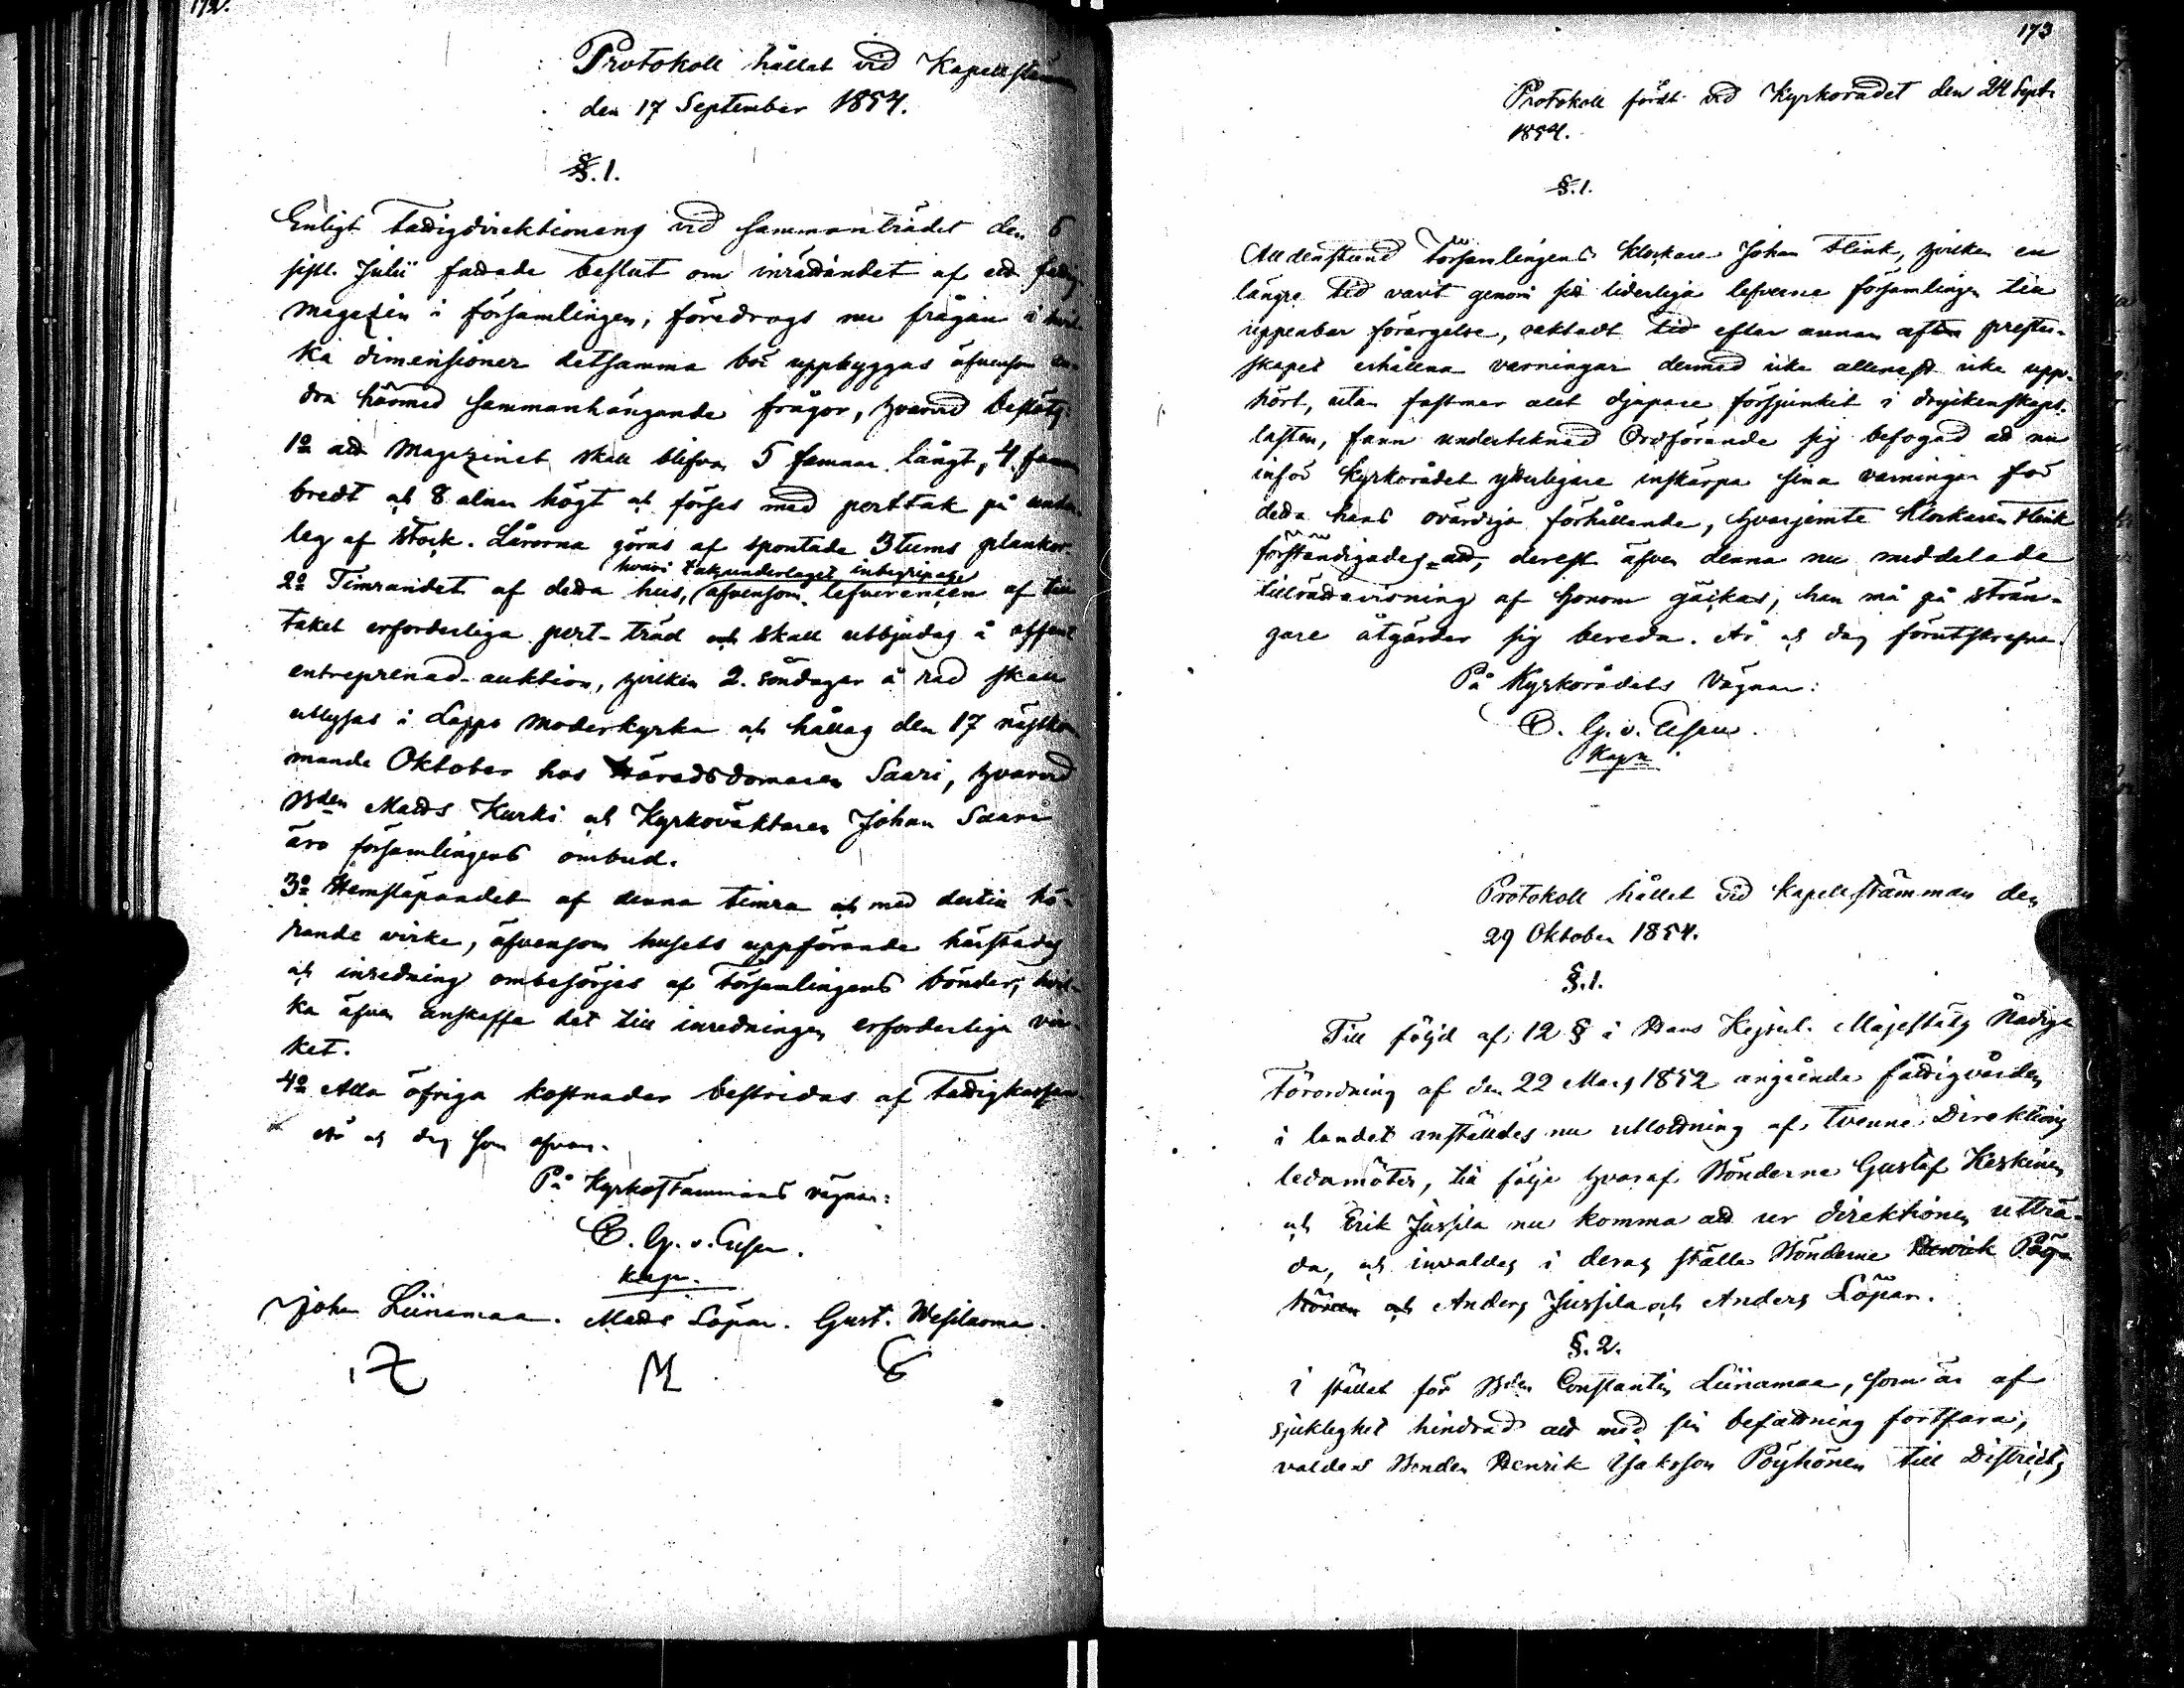 172.
Protokoll hållet vid Kapellstämma
den 17 September 1854.
§. 1.
Enligt Fattigdirektionens vid sammanträdet den 6
sistl. Julii fattade beslut om inrättandet af ett fattig
magazin i församlingen, föredrogs nu frågan i hvil-
ka dimensioner detsamma bör uppbyggas äfvensom an-
dra härmed sammanhängande frågor, hvarvid beslöts:
1o att Magazinet skall blifva 5 famnar långt, 4 famn
bredt och 8 alnar högt och förses med perttak på under-
lag af stock. Lårorna göras af spontade 3 tums plankor.
hvari takunderlaget inbegripes
2o Timrandet af detta hus, äfvensom lefverensen af till
taket erforderliga pert-träd och skall utbjudas å offent
entreprenad-auktion, hvilken 2. söndagar å rad skall
utlysas i Lappo Moderkyrka och hållas den 17 nästkom-
mande Oktober hos Häradsdomaren Saari, hvarvid
Bden Matts Kurki och Kyrkoväktaren Johan Saari
äro församlingens ombud.
3o Hemsläpandet af denna timra och med dertill hö-
rande virke, äfvensom husets uppförande härstädes
och inredning ombesörjes af Församlingens bönder, hvil-
ka äfven anskaffa det till inredningen erforderliga vir-
ket.
4o Alla öfriga kostnader bestridas af Fattigkassan.
År och dag som ofvan.
På Kyrkostämmans vägnar:
C. G. v. Essen.
Kapn.
Johan Liinamaa. Matts Löpar. Gust. Wesilaoma.
M G
173
Protokoll fördt vid Kyrkorådet den 24 Sept.
1854.
§. 1.
Alldenstund Församlingens klockare Johan Flink, hvilken en
längre tid varit genom sitt liderliga lefverne församlingen till
uppenbar förargelse, oaktadt tid efter annan af prester-
skapet erhållna varningar dermed icke allenast icke upp-
hört, utan fastmer allt djupare försjunkit i dryckenskaps-
lasten, fann undertecknad Ordförande sig befogad att nu
inför Kyrkorådet ytterligare inskärpa sina varningar för
detta hans ovärdiga förhållande, hvarjemte Klockaren Flink
förständigades att, derest äfven denna nu meddelade
tillrättavisning af honom gäckas, han må på strän-
gare åtgärder sig bereda. År och dag förutskrefne.
På Kyrkorådets Vägnar:
C. G. v. Essen.
Kapn
Protokoll hållet vid Kapellstämman den
29 Oktober 1854.
§. 1.
Till följd af 12 § i Hans Kejserl. Majestäts Nådiga
Förordning af den 22 Mars 1852 angående fattigvården
i landet anställdes nu utlottning af tvenne Direktions
ledamöter, till följe hvaraf Bönderne Gustaf Keskinen
och Erik Jussila nu komma att ur direktionen utträ-
da, och invaldes i deras ställe Bönderne Henrik Pöy-
hönen och Anders Jussila och Anders Löpar.
§. 2.
I stället för Bden Constantin Liinamaa, som är af
sjuklighet hindrad att med sin befattning fortfara,
valdes Bonden Henrik Isaksson Pöyhönen till Districts